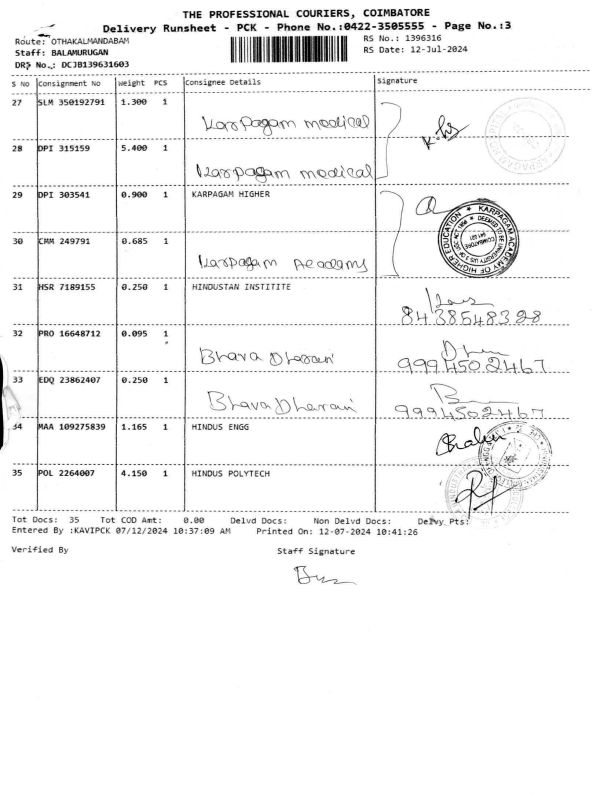 THE PROFESSIONAL COURIERS, COIMBATORE
Delivery Runsheet - PCK - Phone No.:0422-3505555 - Page No.:3
Route: OTHAKALMANDABAM
RS No.: 1396316
Staff: BALAMURUGAN
RS Date: 12-Jul-2024
DRS No.: DCJB139631603
S No Consignment No Weight PCS Consignee Details Signature
27 SLM 350192791 1.300 1
Karpagam medical
28 DPI 315159 5.400 1
Karpagam medical
29 DPI 303541 0.900 1 KARPAGAM HIGHER
KARPAGAM ACADEMY OF HIGHER EDUCATION
COIMBATORE
641 021
30 CMM 249791 0.685 1
Karpagam Academy
31 HSR 7189155 0.250 1 HINDUSTAN INSTITITE
8438548328
32 PRO 16648712 0.095 1
Bhava Dharani 9994502467
33 EDQ 23862407 0.250 1
Bhava Dharani 9994502467
34 MAA 109275839 1.165 1 HINDUS ENGG
35 POL 2264007 4.150 1 HINDUS POLYTECH
Tot Docs: 35 Tot COD Amt: 0.00 Delvd Docs: Non Delvd Docs: Delvy Pts:
Entered By :KAVIPCK 07/12/2024 10:37:09 AM Printed On: 12-07-2024 10:41:26
Verified By Staff Signature